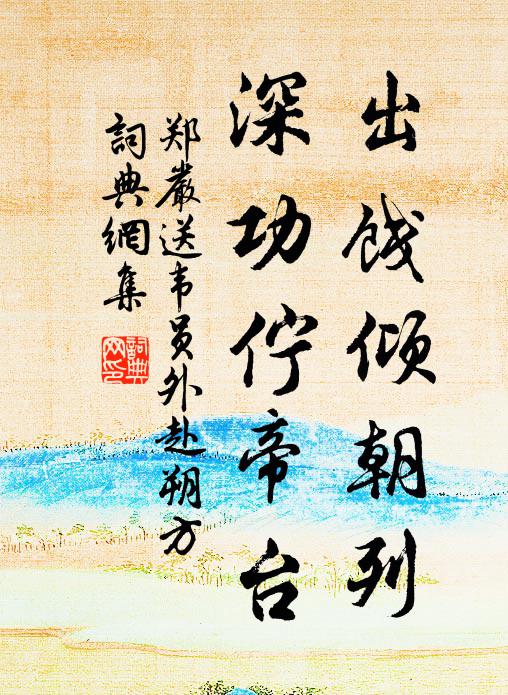 出饯倾朝列
深功伫帝台
郑嚴送韦员外赴朔方
詞典網集
詞典網印